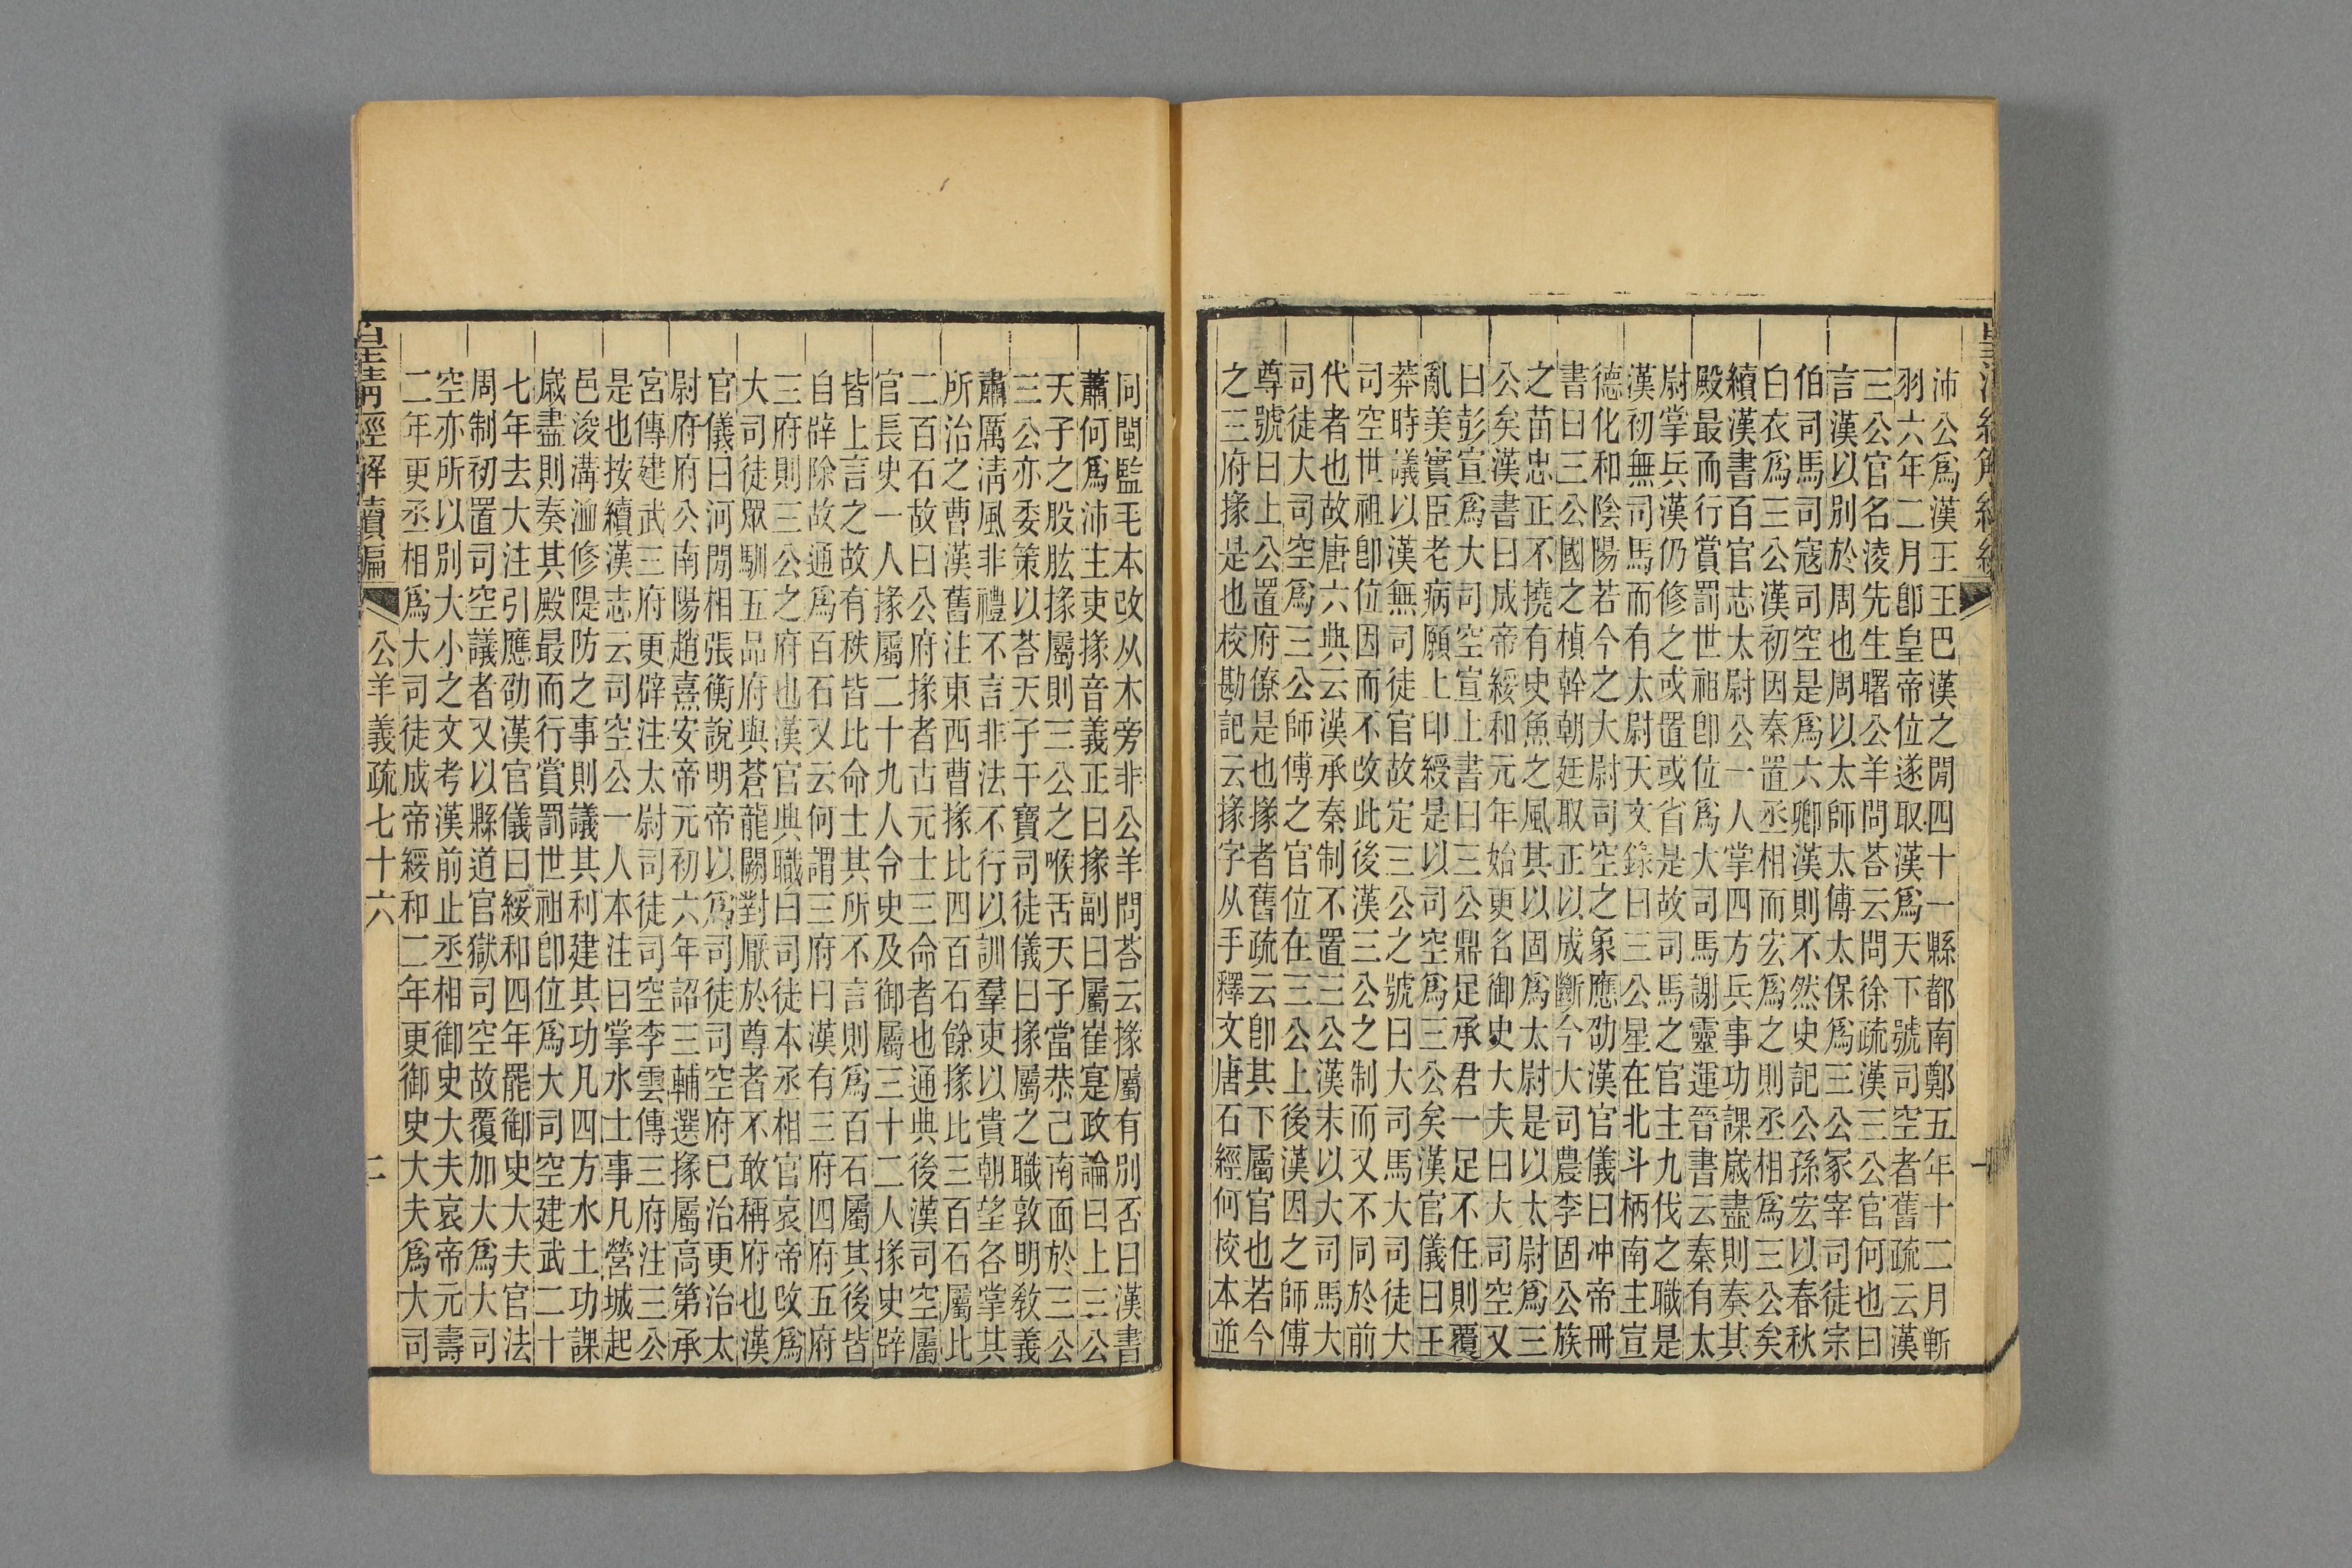 沛公爲漢王王巴漢之閒四十一縣都南鄭五年十二月斬
羽六年二月卽皇帝位遂取漢爲天下號司空者舊疏云漢
三公官名淩先生曙公羊問荅云問徐疏漢三公官何也曰
言漢以別於周也周以太師太傅太保爲三公冢宰司徒宗
伯司馬司寇司空是爲六卿漢則不然史記公孫宏以春秋
白衣爲三公漢初因秦置丞相而宏爲之則丞相爲三公矣
續漢書百官志太尉公一人掌四方兵事功課嵗盡則奏其
殿最而行賞罰世祖卽位爲大司馬謝靈運晉書云秦有太
尉掌兵漢仍修之或置或省是故司馬之官主九伐之職是
漢初無司馬而有太尉天文錄曰三公星在北斗柄南主宣
德化和陰陽若今之大尉司空之象應劭漢官儀曰冲帝冊
書曰三公國之楨幹朝廷取正以成斷今大司農李固公族
之苗忠正不撓有史魚之風其以固爲太尉是以太尉爲三
公矣漢書曰成帝綏和元年始更名御史大夫曰大司空又
曰彭宣爲大司空宣上書曰三公鼎足承君一足不任則覆
亂美實臣老病願上印綬是以司空爲三公矣漢官儀曰王
莽時議以漢無司徒官故定三公之號曰大司馬大司徒大
司空世祖卽位因而不改此後漢三公之制而又不同於前
代者也故唐六典云漢承秦制不置三公漢末以大司馬大
司徒大司空爲三公師傅之官位在三公上後漢因之師傅
尊號曰上公置府僚是也掾者舊疏云卽其下屬官也若今
之三府掾是也校勘記云掾字从手釋文唐石經何校本並
同閩監毛本改从木旁非公羊問荅云掾屬有別否曰漢書
蕭何爲沛主吏掾音義正曰掾副曰屬崔寔政論曰上三公
天子之股肱掾屬則三公之喉舌天子當恭己南面於三公
三公亦委策以荅天子干寶司徒儀曰掾屬之職敦明敎義
肅厲淸風非禮不言非法不行以訓羣吏以貴朝望各掌其
所治之曹漢舊注東西曹掾比四百石餘掾比三百石屬比
二百石故曰公府掾者古元士三命者也通典後漢司空屬
官長史一人掾屬二十九人令史及御屬三十二人掾史辟
皆上言之故有秩皆比命士其所不言則爲百石屬其後皆
自辟除故通爲百石又云何謂三府曰漢有三府四府五府
三府則三公之府也漢官典職曰司徒本丞相官哀帝改爲
大司徒眾馴五品府與蒼龍闕對厭於尊者不敢稱府也漢
官儀曰河閒相張衡說明帝以爲司徒司空府已治更治太
尉府府公南陽趙熹安帝元初六年詔三輔選掾屬高第承
宮傳建武三府更辟注太尉司徒司空李雲傳三府注三公
是也按續漢志云司空公一人本注曰掌水土事凡營城起
邑浚溝洫修隄防之事則議其利建其功凡四方水土功課
嵗盡則奏其殿最而行賞罰世祖卽位爲大司空建武二十
七年去大注引應劭漢官儀曰綏和四年罷御史大夫官法
周制初置司空議者又以縣道官獄司空故覆加大爲大司
空亦所以別大小之文考漢前止丞相御史大夫哀帝元壽
二年更丞相爲大司徒成帝綏和二年更御史大夫爲大司
皇淸經解續編 公羊義疏七十六 二